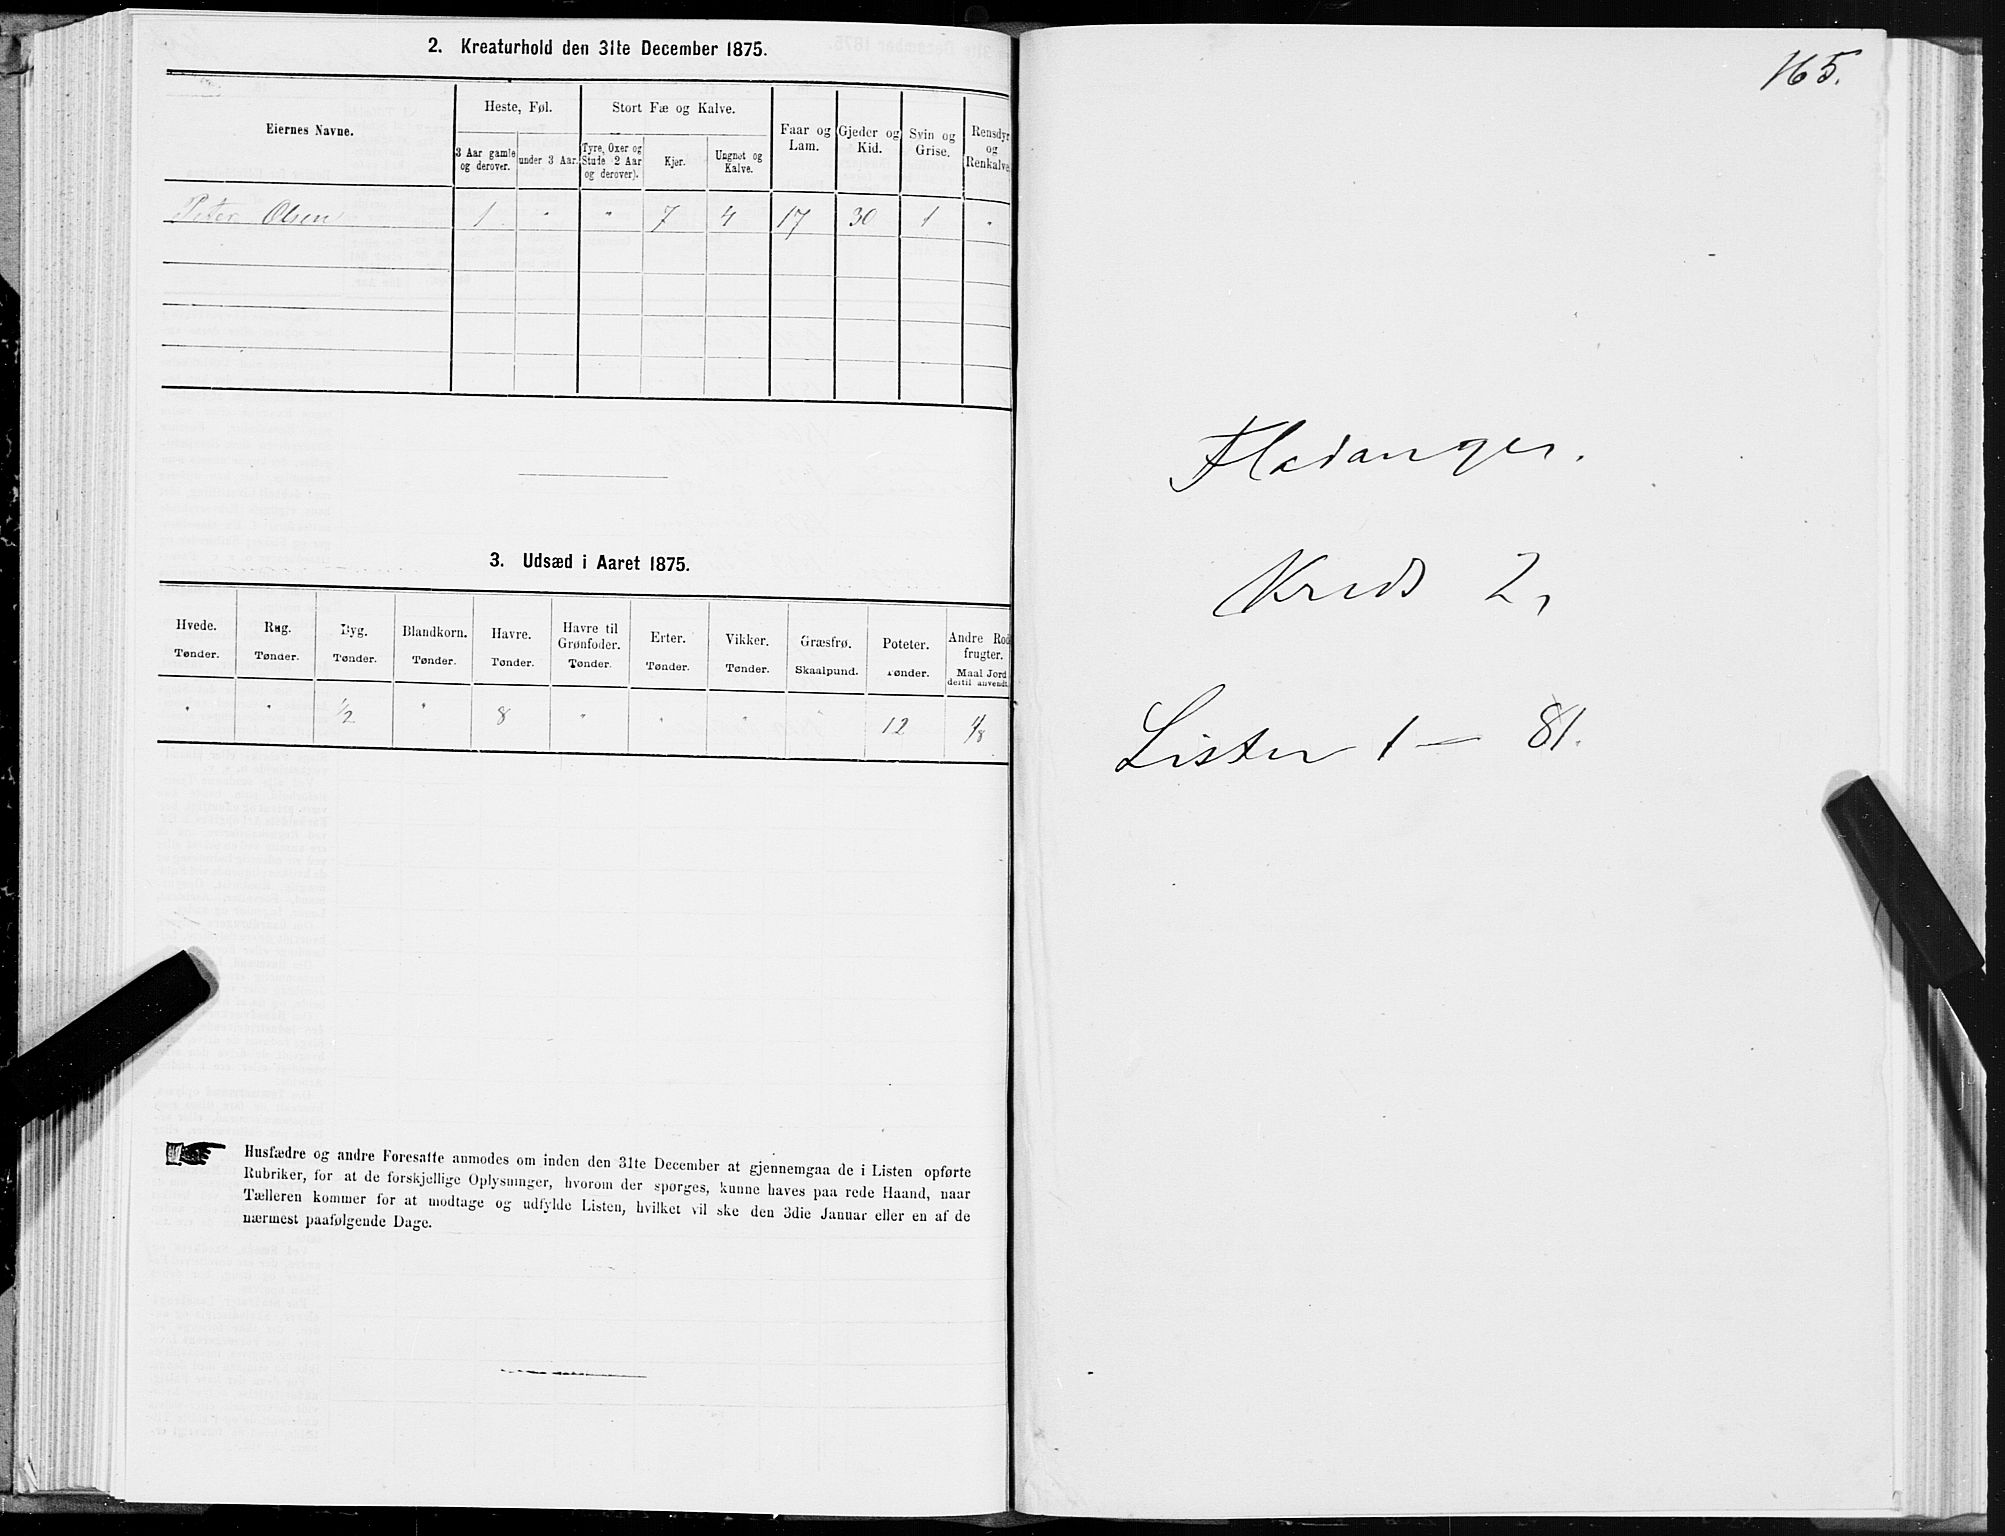 2. Kreaturhold den 31te December 1875.
Eiernes Navne.
Heste, Føl.
Stort Fæ og Kalve.
Faar og Lam.
Gjeder og Kid.
Svin og Grise.
Rensdyr og Renkalve
3 Aar gamle og derover.
under 3 Aar.
Tyre, Oxer og Stude (2 Aar og derover).
Kjør.
Ungnøt og Kalve.
Peter Olsen 1 " " 7 4 17 30 1 "
3. Udsæd i Aaret 1875.
Hvede. Rug. Byg. Blandkorn. Havre. Havre til Grønfoder. Erter. Vikker. Græsfrø. Poteter. Andre Rodfrugter.
Tønder. Tønder. Tønder. Tønder. Tønder. Tønder. Tønder. Tønder. Skaalpund. Tønder. Maal Jord dertil anvendt.
" " 1/2 " 8 " " " " 12 1/8
Husfædre og andre Foresatte anmodes om inden den 31te December at gjennemgaa de i Listen opførte
Rubriker, for at de forskjellige Oplysninger, hvorom der spørges, kunne haves paa rede Haand, naar
Tælleren kommer for at modtage og udfylde Listen, hvilket vil ske den 3die Januar eller en af de
nærmest paafølgende Dage.
165.
Fladanger.
Kreds 2,
Lister 1 — 81.